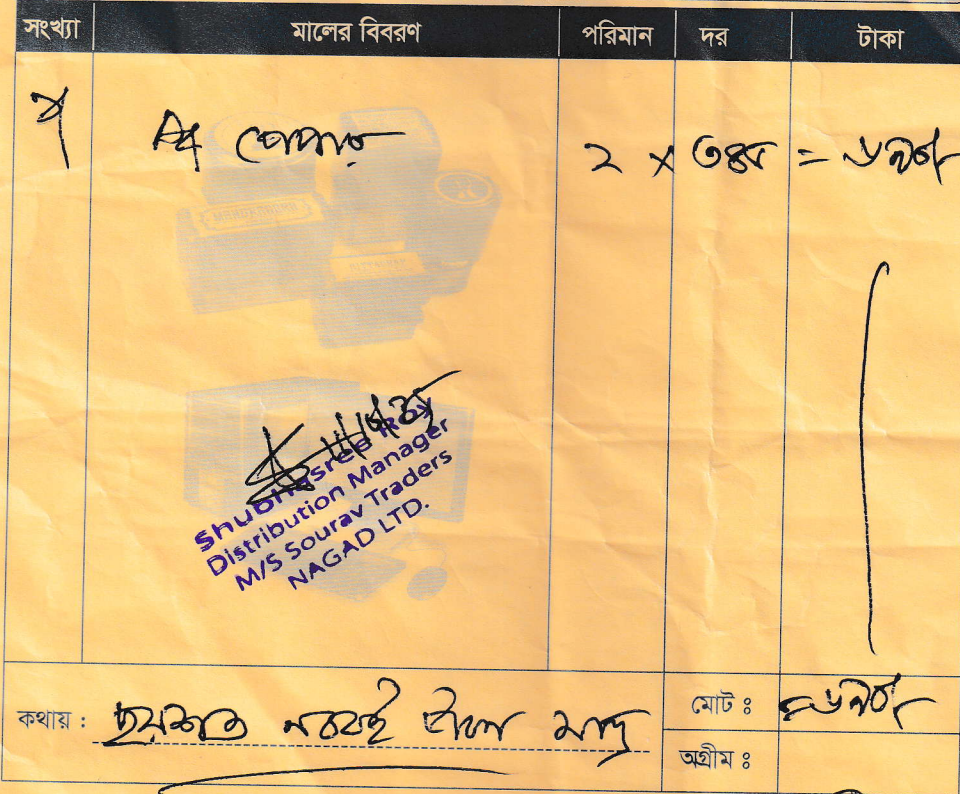 সংখ্যা মালের বিবরণ পরিমান দর টাকা
১ A4 পেপার ২ x ৩৪৫ = ৬৯০/-
Shubhasree Roy
Distribution Manager
M/S Sourav Traders
NAGAD LTD.
কথায় : ছয়শত নব্বই টাকা মাত্র মোট : ৬৯০/-
অগ্রীম :